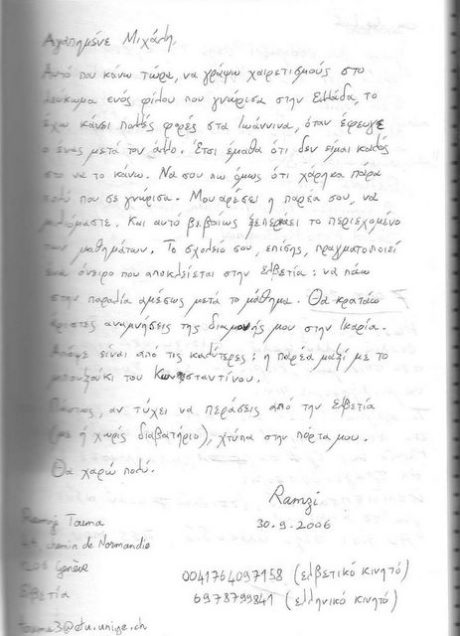 Αγαπημένε Μιχάλη,
Αυτό που κάνω τώρα, να γράφω χαιρετισμούς στο
λεύκωμα ενός φίλου που γνώρισα στην Ελλάδα, το
έχω κάνει πολλές φορές στα Ιωάννινα, όταν έφευγε
ο ένας μετά τον άλλο. Έτσι έμαθα ότι δεν είμαι καλός
στο να το κάνω. Να σου πω όμως ότι χάρηκα πάρα
πολύ που σε γνώρισα. Μου αρέσει η παρέα σου, να
μιλάμε. Και αυτό βεβαίως ξεπερνάει το περιεχόμενο
των μαθημάτων. Το σχολείο σου, επίσης, πραγματοποιεί
ένα όνειρο που αποκλείεται στην Ελβετία: να πάω
στην παραλία αμέσως μετά το μάθημα. Θα κρατάω
άριστες αναμνήσεις της διαμονής μου στην Ικαρία.
είναι από τις καλύτερες: η παρέα μαζί με το
μπουζούκι του Κωνσταντίνου.
Πάντως, αν τύχει να περάσεις από την Ελβετία
(με ή χωρίς διαβατήριο), χτύπα στην πόρτα μου.
Θα χαρώ πολύ.
Ramzi
30.9.2006
Ramzi
chemin de Normandie
1206 Genève
Ελβετία
0041764097158 (ελβετικό κινητό)
6978799841 (ελληνικό κινητό)